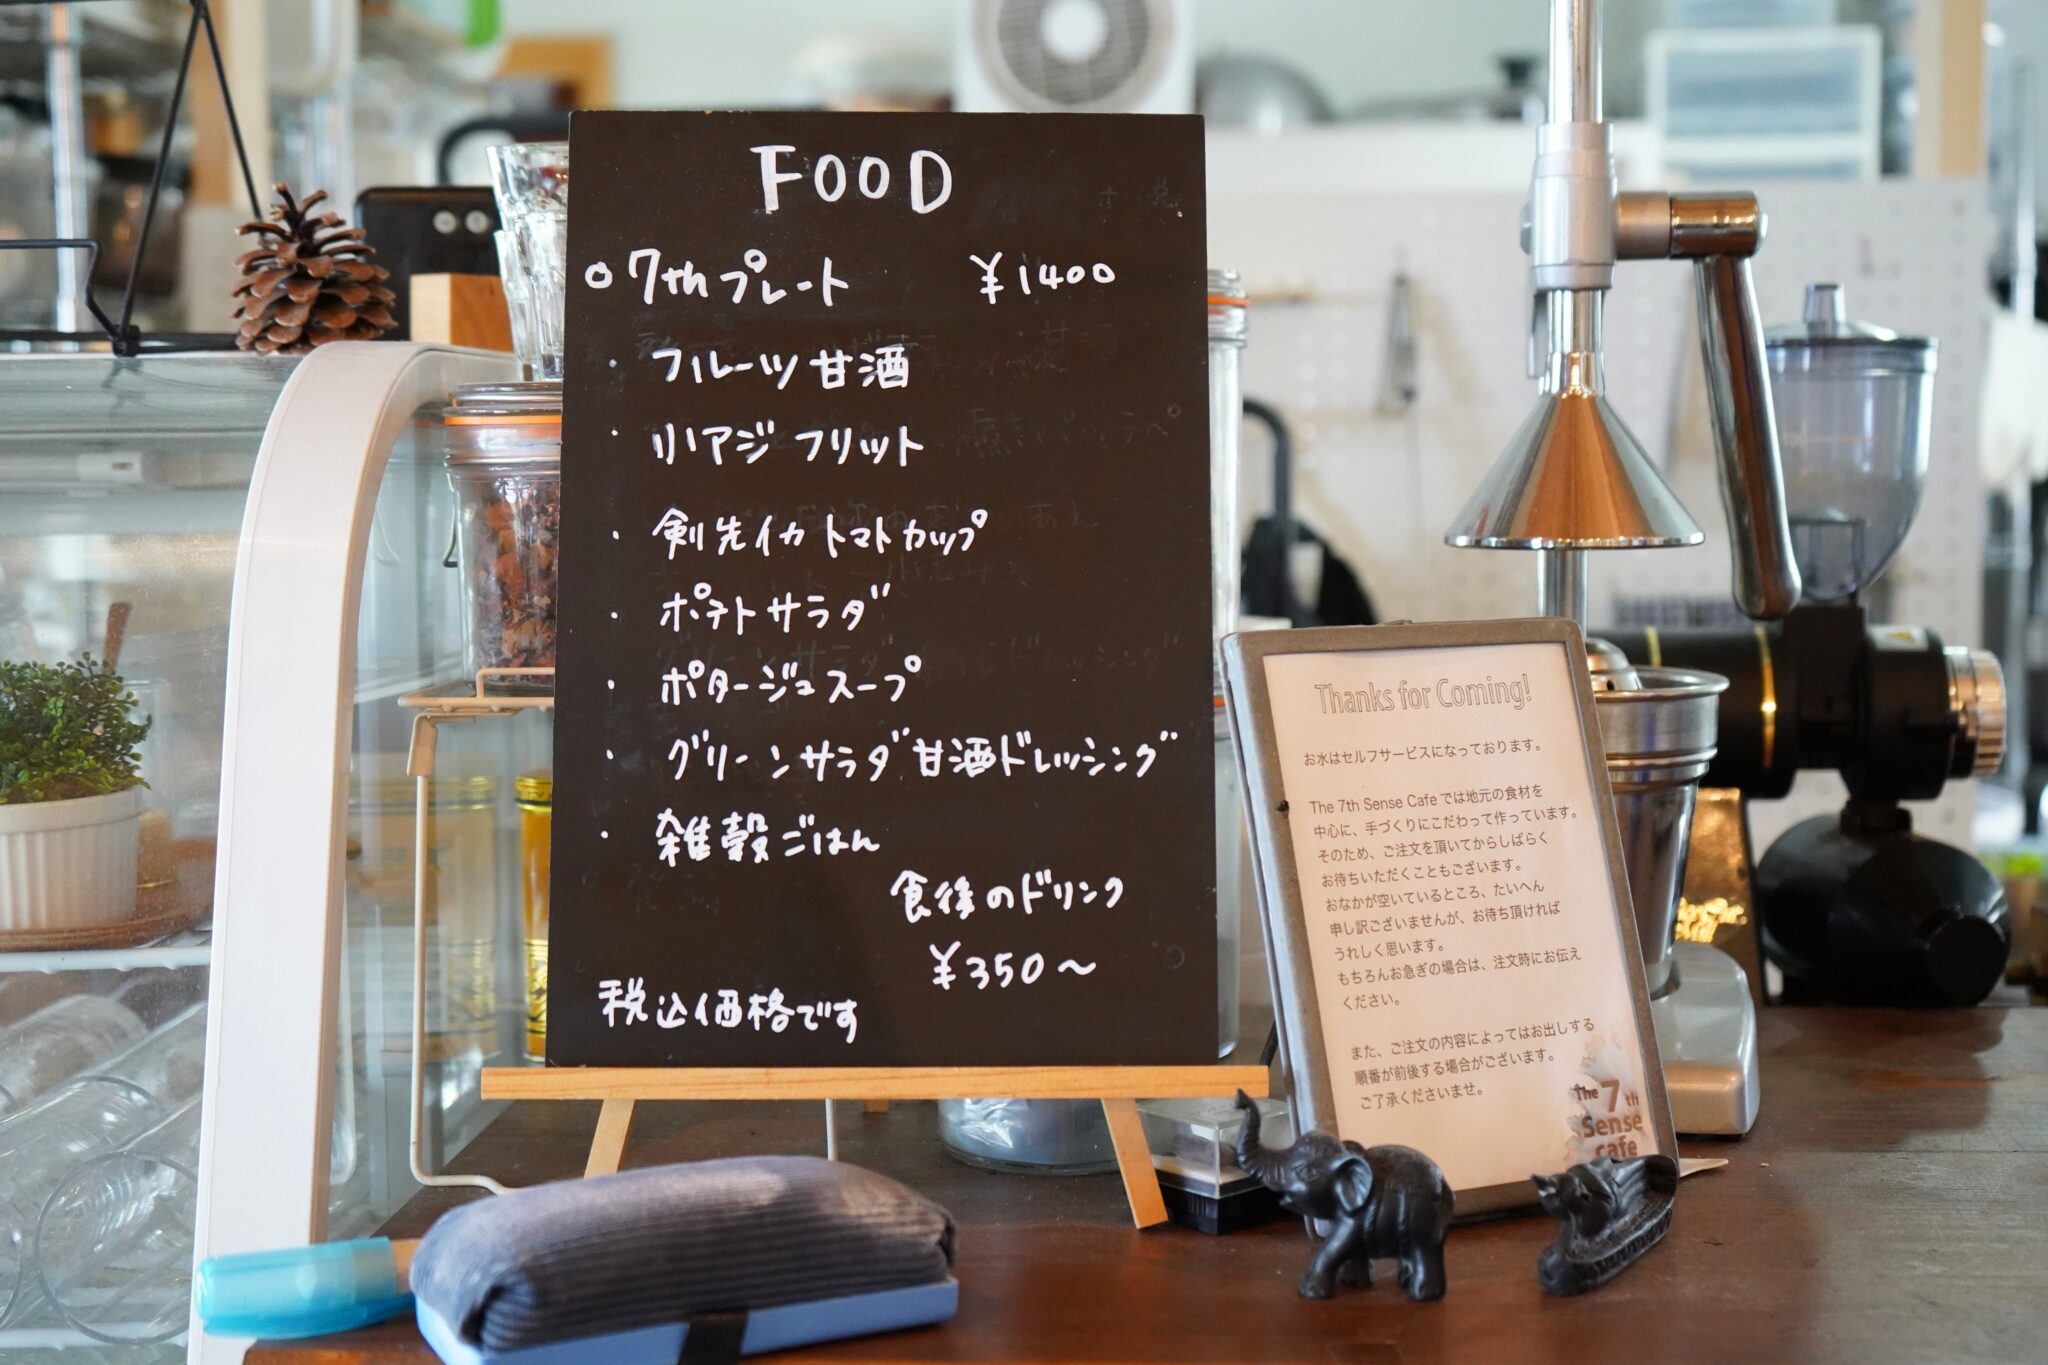 FOOD
○ 7thプレート ¥1400
・ フルーツ甘酒
・ 小アジ フリット
・ 剣先イカ トマトカップ
・ ポテトサラダ
・ ポタージュスープ
・ グリーンサラダ 甘酒ドレッシング
・ 雑穀ごはん
食後のドリンク
¥350〜
税込価格です
Thanks for Coming!
お水はセルフサービスになっております。
The 7th Sense Cafeでは地元の食材を
中心に、手づくりにこだわって作っています。
そのため、ご注文を頂いてからしばらく
お待ちいただくこともございます。
おなかが空いているところ、たいへん
申し訳ございませんが、お待ち頂ければ
うれしく思います。
もちろんお急ぎの場合は、注文時にお伝え
ください。
また、ご注文の内容によってはお出しする
順番が前後する場合がございます。
ご了承くださいませ。
The 7 th
Sense
cafe